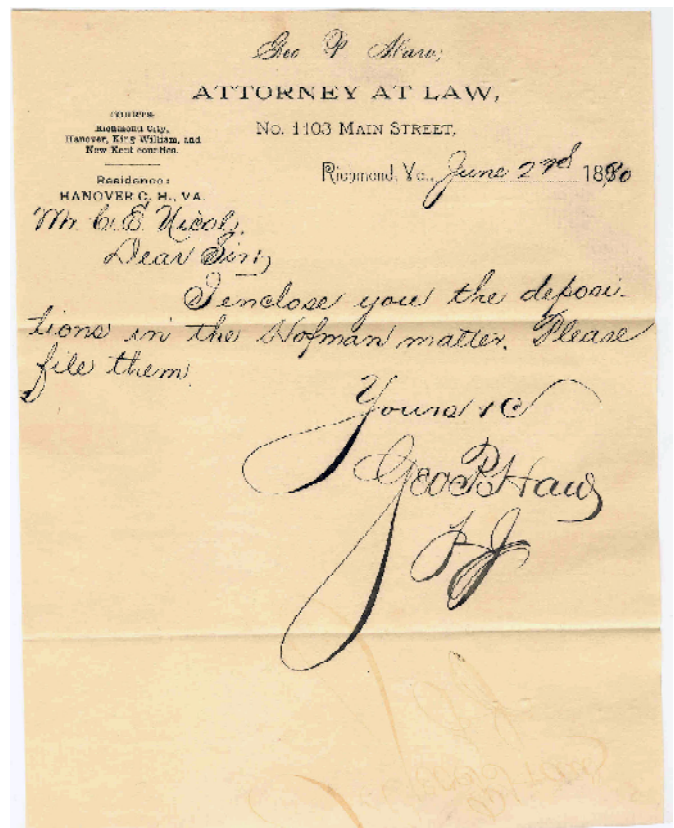 Geo P Haw,
ATTORNEY AT LAW,
No. 1103 MAIN STREET,
COURTS
Richmond City,
Hanover, King William, and
New Kent counties.
Residence:
HANOVER C. H., VA.
Richmond, Va., June 2nd 1890
Mr C. E. Nicol,
Dear Sir,
I enclose you the deposi-
tions in the Hofman matter. Please
file them.
Yours &C
Geo P. Haw